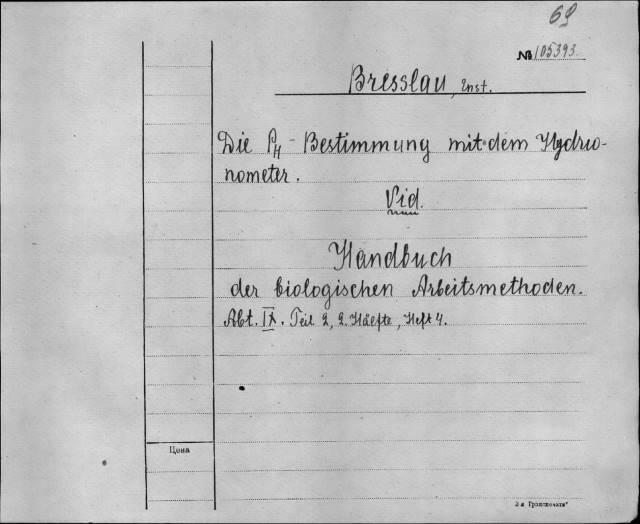 69
№ 105393.
Bresslau, Ernst.
Die PH - Bestimmung mit dem Hydrio-
nometer.
Vid.
Handbuch
der biologischen Arbeitsmethoden.
Abt. IX. Teil 2, 2. Hälfte, Heft 4.
Цена